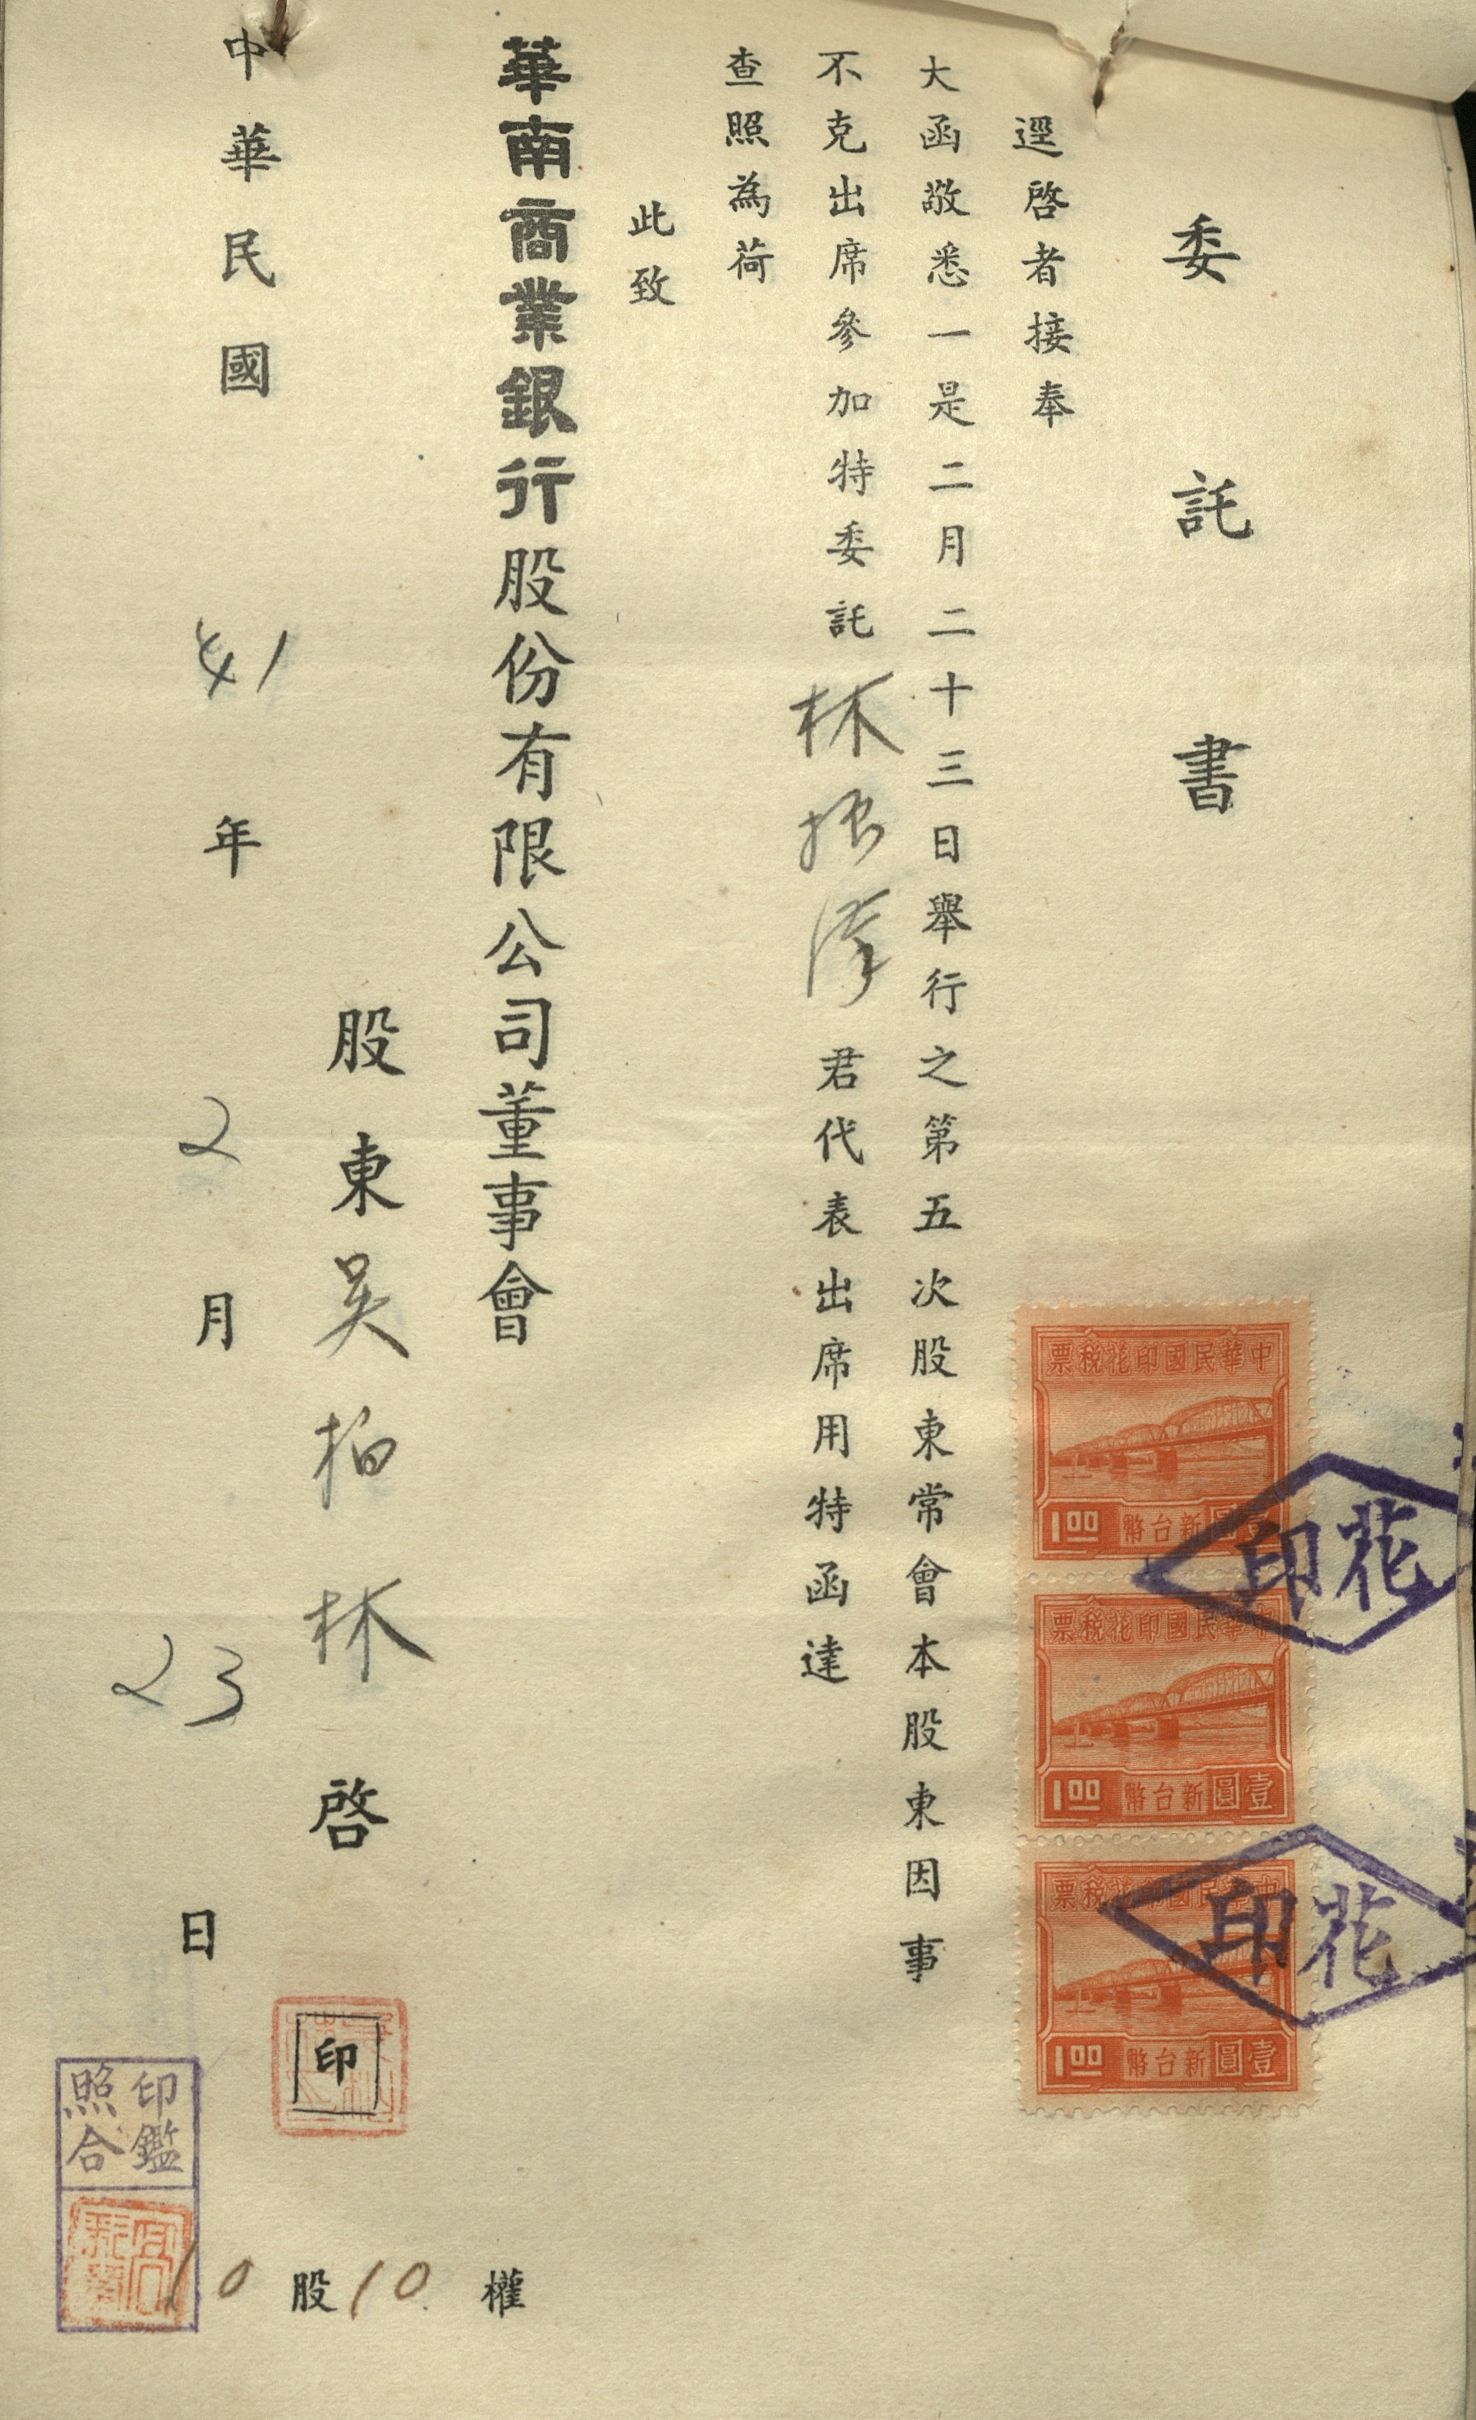 委託書
逕啓者接奉
大函敬悉一是二月二十三日舉行之第五次股東常會本股東因事
不克出席參加特委託林振 君代表出席用特函達
查照為荷
此致
華南商業銀行股份有限公司董事會
股東吳柏林啓
印
中華民國41年2月23日
10股10權
印鑑
照合
中華民國印花稅票
壹圓新台幣
1.00
中華民國印花稅票
壹圓新台幣
1.00
中華民國印花稅票
壹圓新台幣
1.00
花印
花印